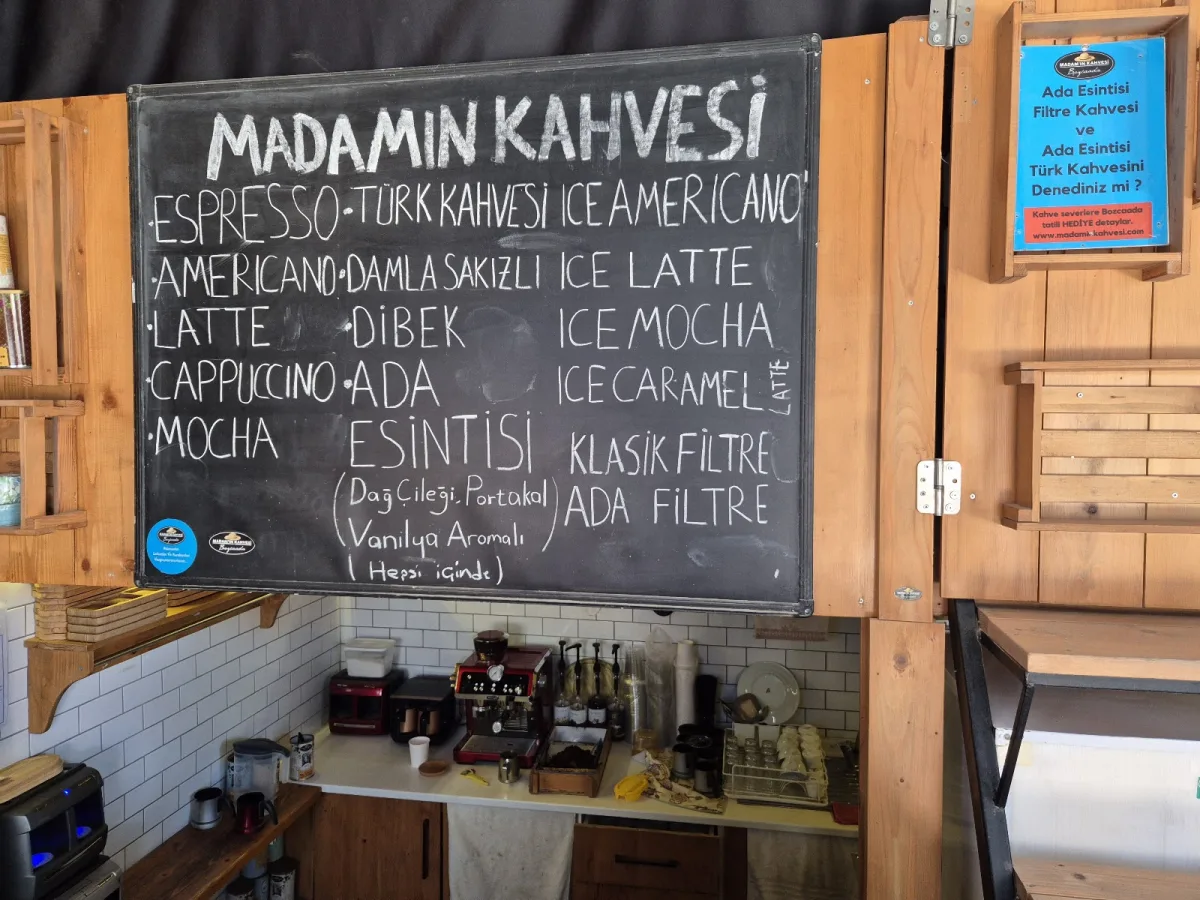 MADAMIN KAHVESİ
·ESPRESSO
·AMERICANO
·LATTE
·CAPPUCCINO
·MOCHA
·TÜRK KAHVESİ
·DAMLA SAKIZLI
·DİBEK
·ADA
ESİNTİSİ
(Dağ Çileği, Portakal
Vanilya Aromalı)
(Hepsi içinde)
ICE AMERICANO
ICE LATTE
ICE MOCHA
ICE CARAMEL LATTE
KLASİK FİLTRE
ADA FİLTRE
MADAM'IN KAHVESİ
Bozcaada
Ada Esintisi
Filtre Kahvesi
ve
Ada Esintisi
Türk Kahvesini
Denediniz mi ?
Kahve severlere Bozcaada
tatili HEDİYE detaylar.
www.madaminkahvesi.com
MADAM'IN KAHVESİ
Bozcaada